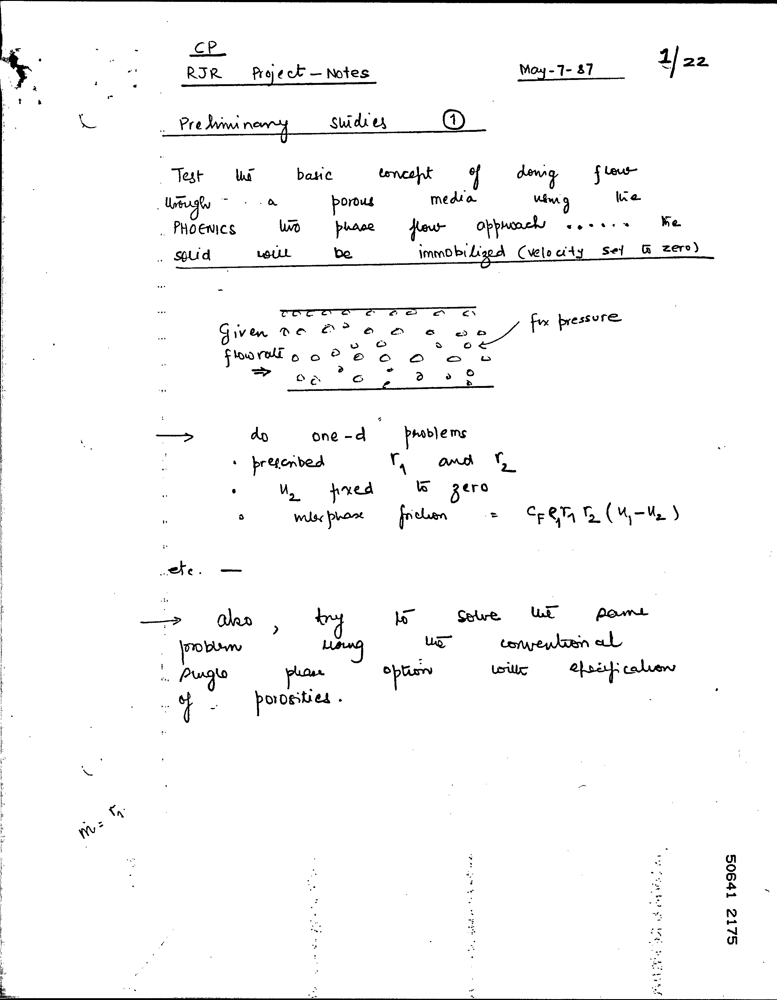 CP
RJR Project – Notes May-7-87 1/22
Preliminary studies ①
Test the basic concept of doing flow
through a porous media using the
PHOENICS two phase flow approach ...... the
solid will be immobilized (velocity set to zero)
Given
flow rate
⇒
fix pressure
→ do one-d problems
• prescribed r₁ and r₂
• u₂ fixed to zero
• interphase friction = C_F ρ₁ r₁ r₂ (u₁ – u₂)
etc. —
→ also, try to solve the same
problem using the conventional
single phase option with specification
of porosities.
ṁ = r₁
50641 2175